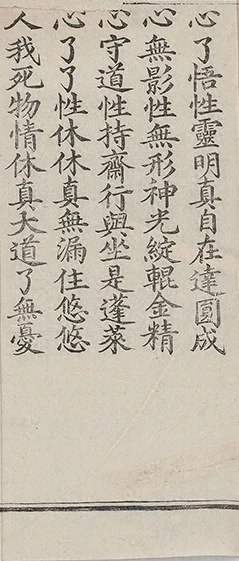 心了悟性靈明真自在達圓成
心無影性無形神光綻輥金精
心守道性持齋行與坐是蓬萊
心了了性休休真無漏住悠悠
人我死物情休真大道了無憂